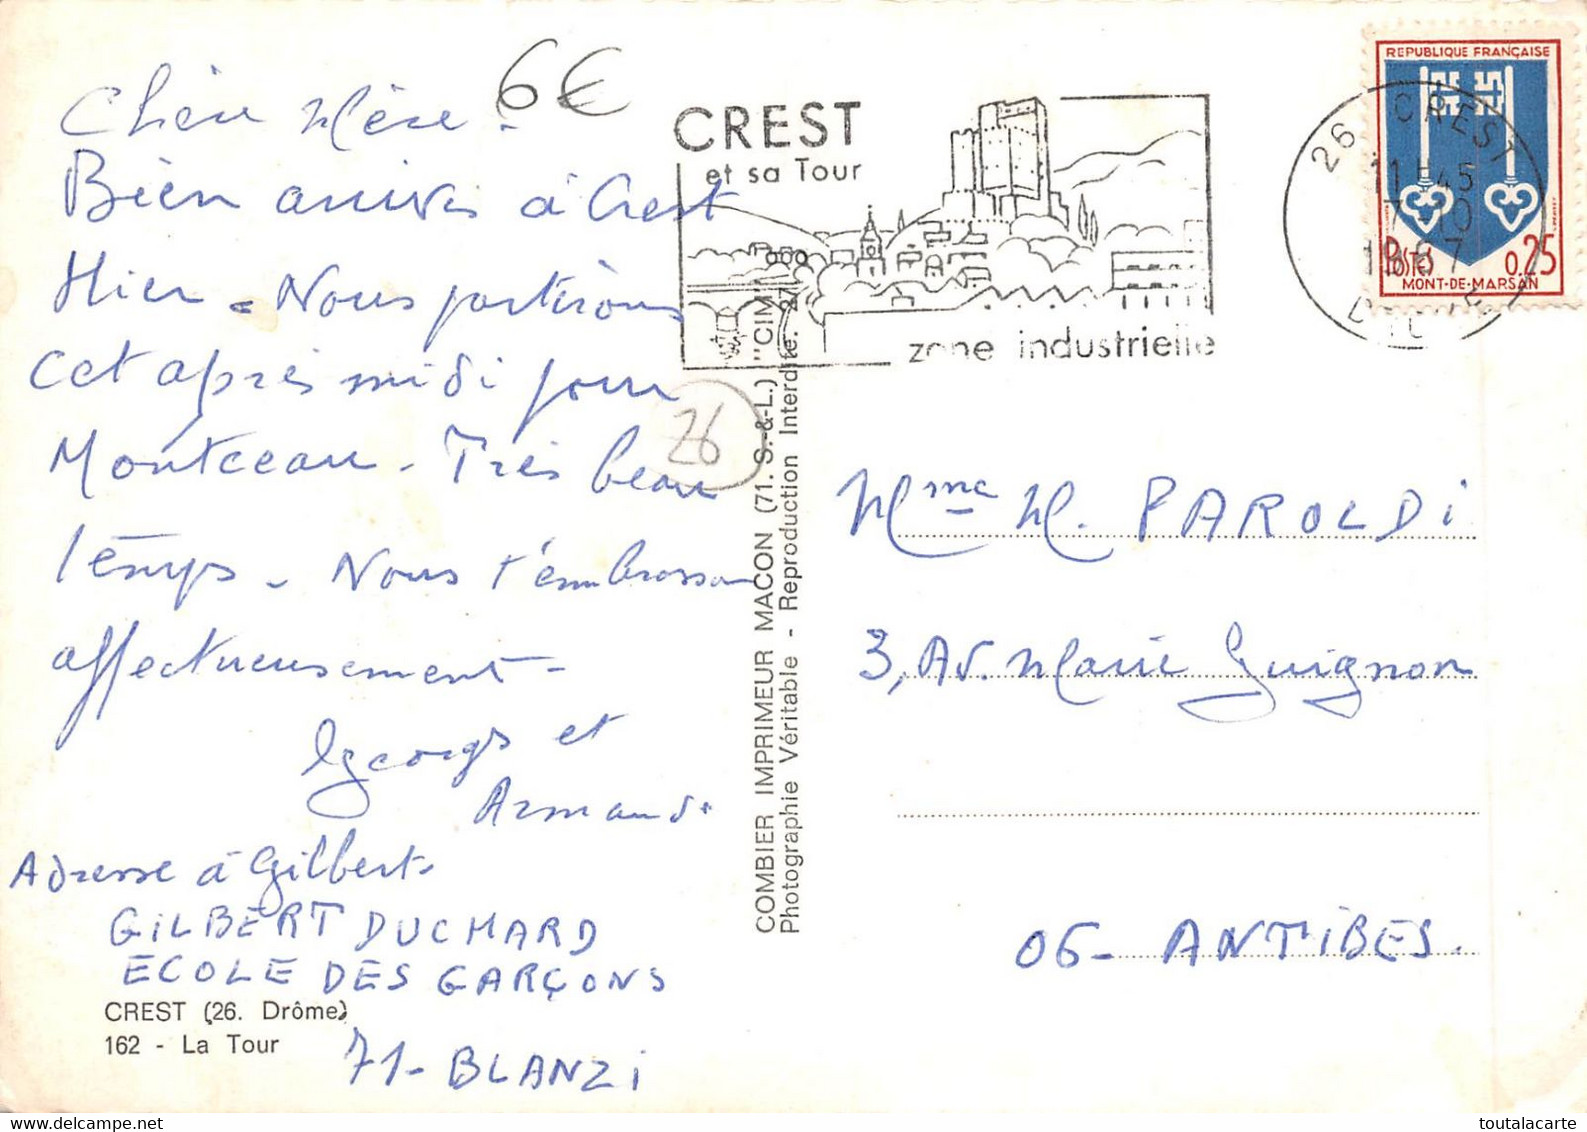 6€
Chère Mère -
Bien arrivés à Crest
Hier - Nous partirons
cet après midi pour
Montceau - Très beau
temps - Nous t'embrassons
affectueusement -
Georges et
Armande
Adresse à Gilbert
GILBERT DUCHARD
ECOLE DES GARÇONS
71- BLANZI
CREST (26. Drôme)
162 - La Tour
26
COMBIER IMPRIMEUR MACON (71. S.-&-L.) "CIM"
Photographie Véritable - Reproduction Interdite. 27
CREST
et sa Tour
zone industrielle
26 CREST
11H45
7-10
1967
DROME
REPUBLIQUE FRANÇAISE
POSTES 0.25
MONT-DE-MARSAN
Mme M. PAROLDI
3, Av. Marie Guignon
06- ANTIBES.
toutalacarte